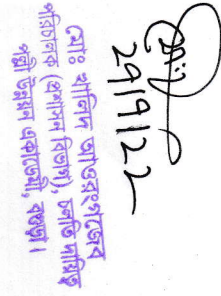 29/9/22
মোঃ খালিদ আওরংগজেব
পরিচালক (প্রশাসন বিভাগ), চলতি দায়িত্ব
পল্লী উন্নয়ন একাডেমী, বগুড়া।